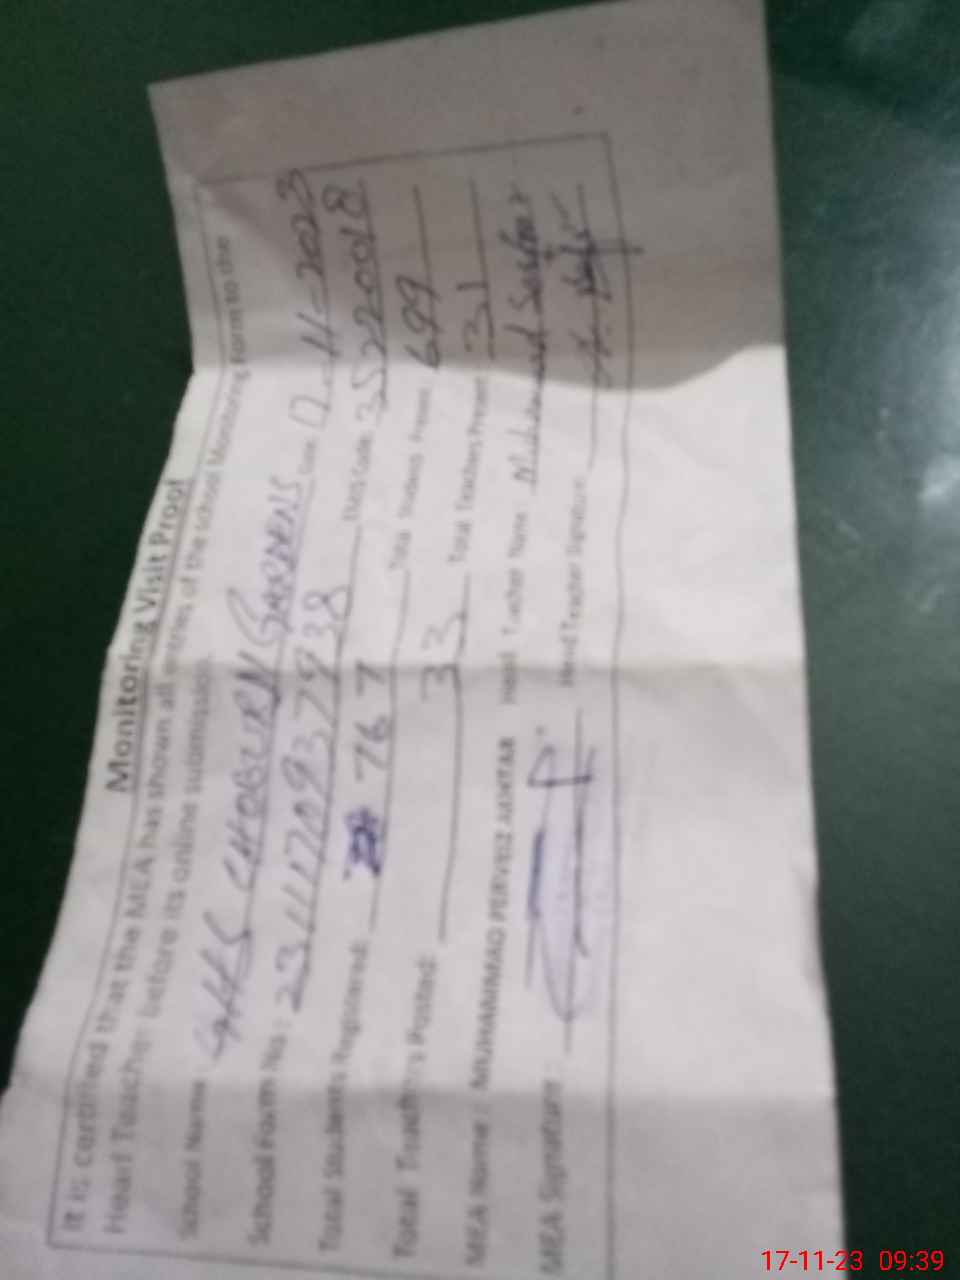 Monitoring Visit Proof
It is certified that the MEA has shown all entries of the School Monitoring Form to the
Head Teacher before its online submission.
School Name: GHS CHOBURN GARDENS Date: 17-11-2023
School Form No: 231117093 79938 EMIS Code: 35220018
Total Students Registered: 767 Total Students Present: 699
Total Teachers Posted: 33 Total Teachers Present 31
MEA Name: MUHAMMAD PERVEIZ AKHTAR Head Teacher Name: Muhammad
MEA Signature: Head Teacher Signature:
17-11-23 09:39